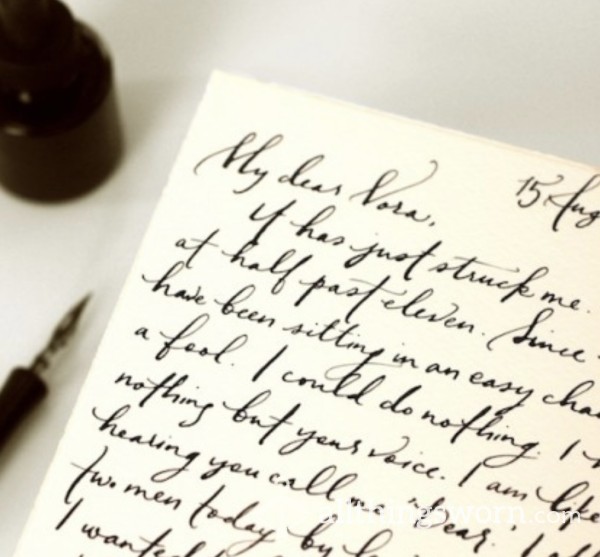 15 Aug
My dear Nora,
It has just struck me.
at half past eleven. Since
have been sitting in an easy chai
a fool. I could do nothing. I
nothing but your voice. I am like
hearing you call 'Dear.' I
two men today by
I wanted
allthingsworn.com